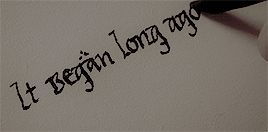 It Began long ago